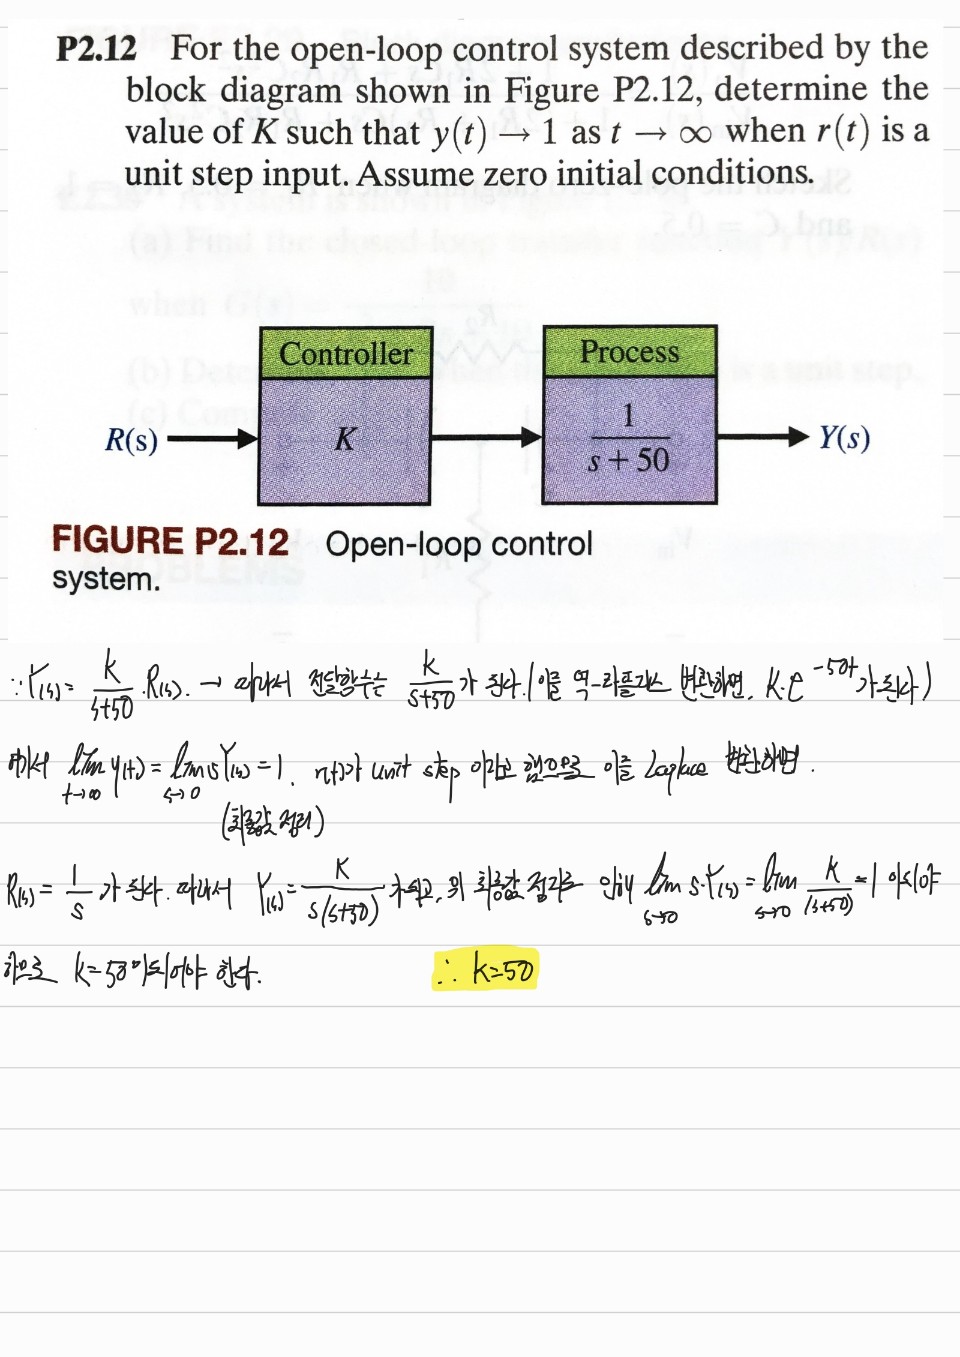 P2.12 For the open-loop control system described by the
block diagram shown in Figure P2.12, determine the
value of K such that y(t) → 1 as t → ∞ when r(t) is a
unit step input. Assume zero initial conditions.
Controller
Process
R(s)
K
1
s + 50
Y(s)
FIGURE P2.12 Open-loop control
system.
∵ Y(s) = K/(s+50) · R(s). → 따라서 전달함수는 K/(s+50) 가 된다. (이를 역-라플라스 변환하면, K·e^(-50t) 가 된다)
에서 lim t→∞ y(t) = lim s→0 sY(s) = 1. r(t)가 unit step 이라고 했으므로 이를 Laplace 변환하면.
(최종값 정리)
R(s) = 1/s 가 된다. 따라서 Y(s) = K/(s(s+50)) 가 되고, 위 최종값 정리로 인해 lim s→0 s·Y(s) = lim s→0 K/(s+50) = 1 이어야
하므로 K=50 이 되어야 한다.
∴ K=50